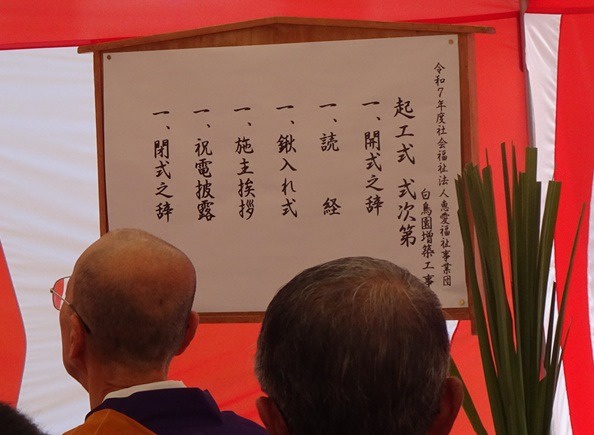 令和7年度社会福祉法人恵愛福祉事業団
白鳥園増築工事
起工式 式次第
一、開式之辞
一、読 経
一、鍬入れ式
一、施主挨拶
一、祝電披露
一、閉式之辞